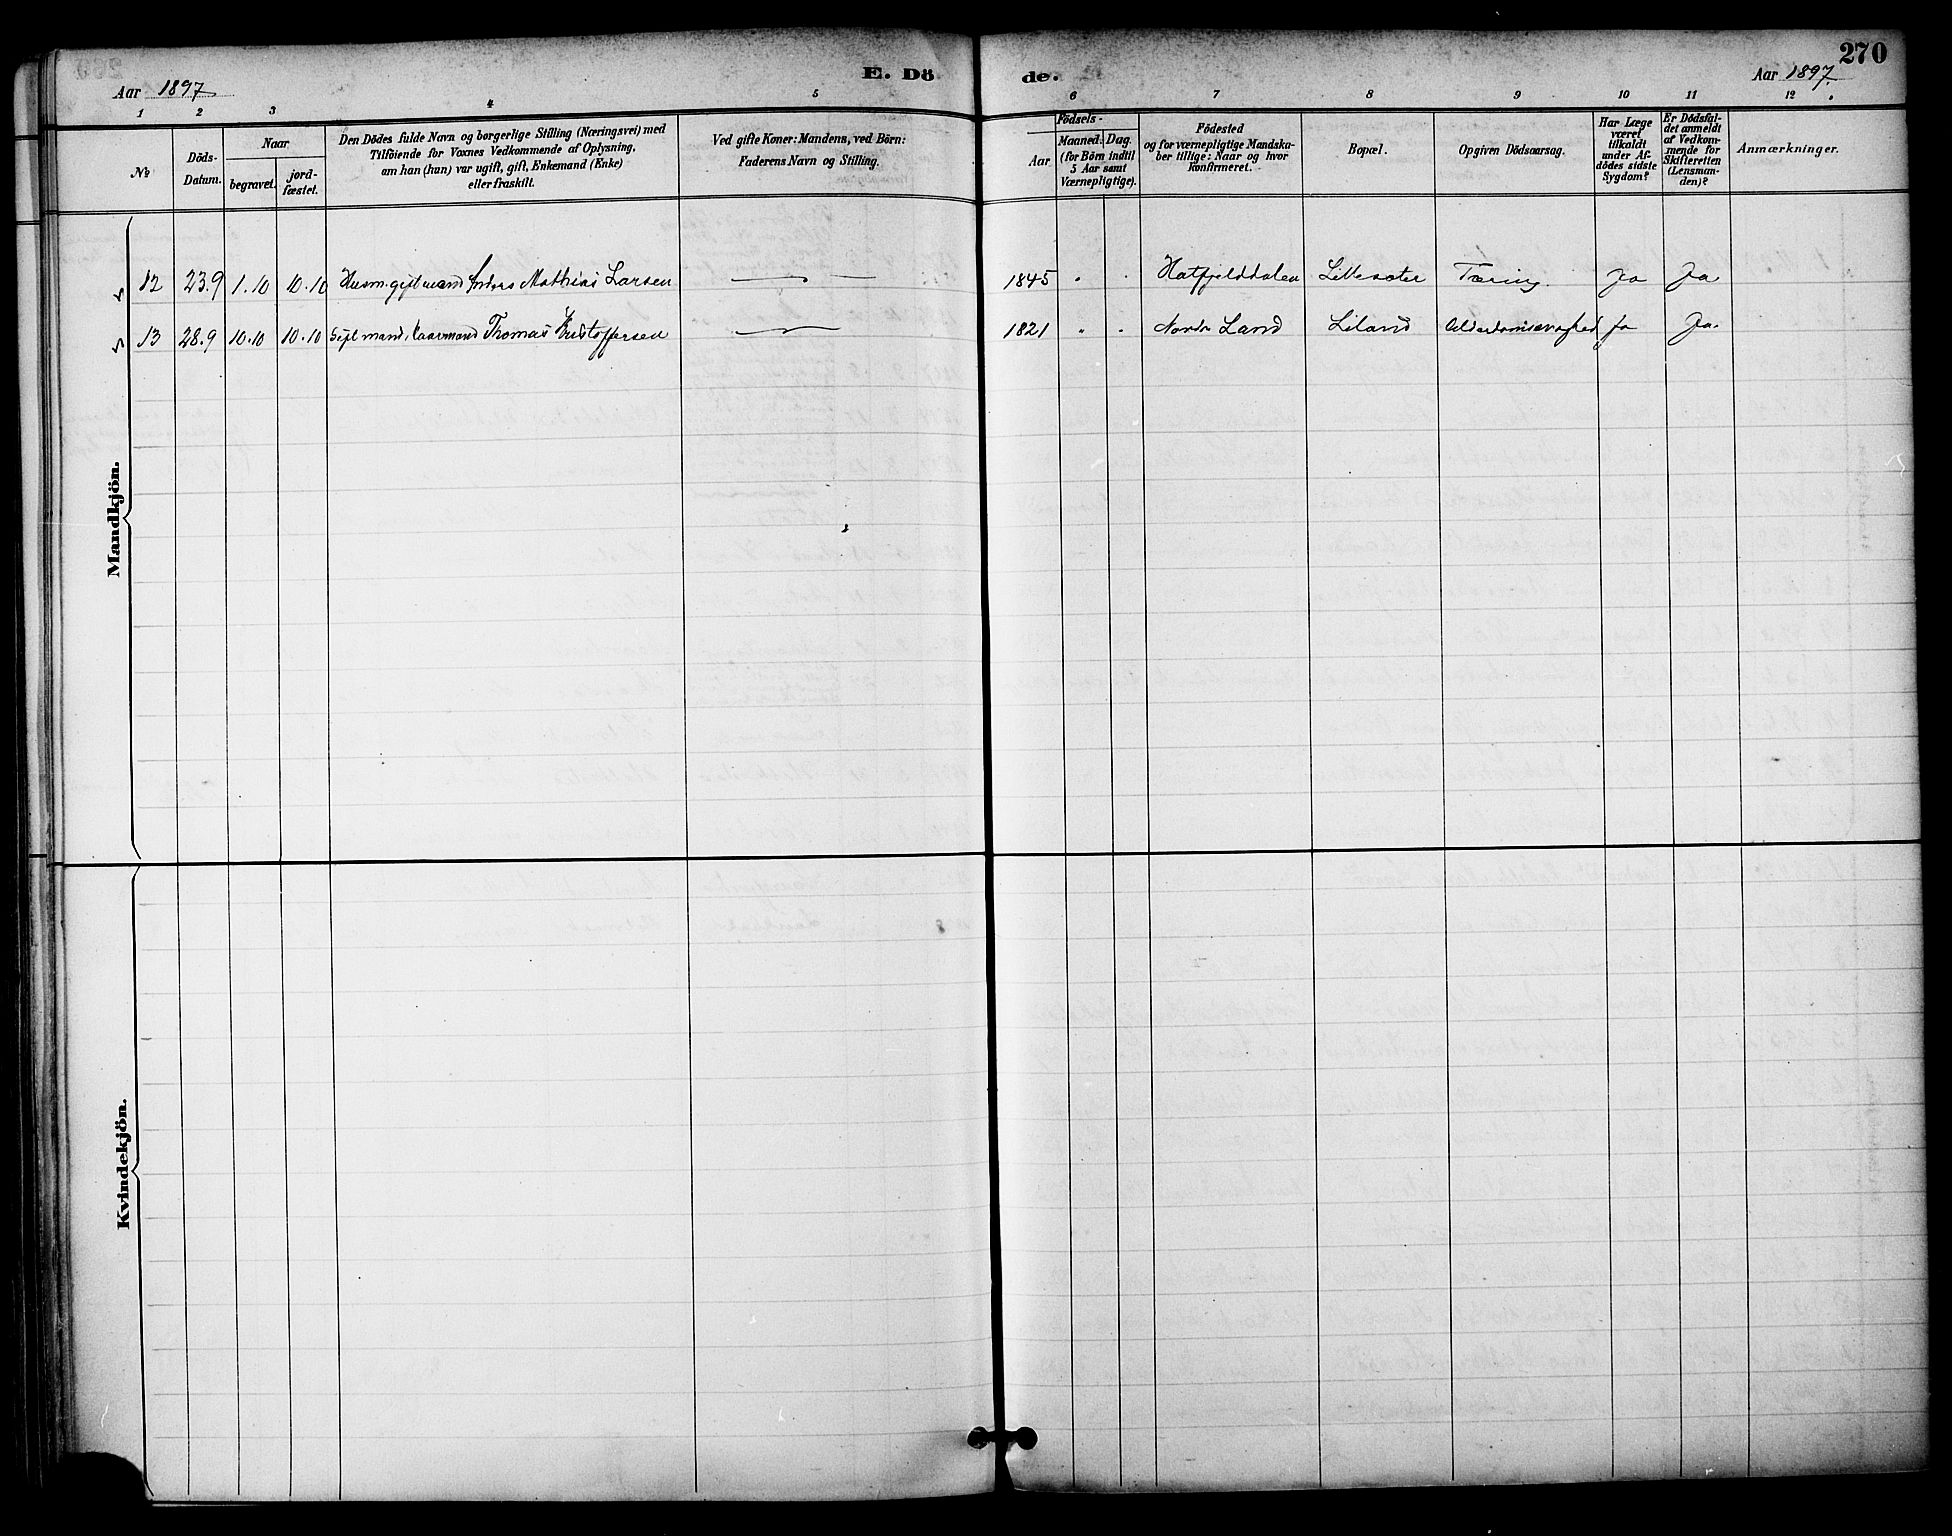 270
Aar 1897
E. Dö
de.
Aar 1897.
1 2 3 4 5 6 7 8 9 10 11 12
No
Döds-
Datum.
Naar
begravet.
jord-
fæstet.
Den Dödes fulde Navn og borgerlige Stilling (Næringsvei) med
Tilföiende for Voxnes Vedkommende af Oplysning,
om han (hun) var ugift, gift, Enkemand (Enke)
eller fraskilt.
Ved gifte Koner: Mandens, ved Börn:
Faderens Navn og Stilling.
Födsels-
Aar
Maaned. Dag.
(for Börn indtil
5 Aar samt
Værnepligtige).
Födested
og for værnepligtige Mandska-
ber tillige: Naar og hvor
konfirmeret.
Bopæl.
Opgiven Dödsaarsag.
Har Læge
været
tilkaldt
under Af-
dödes sidste
Sygdom?
Er Dödsfal-
det anmeldt
af Vedkom-
mende for
Skifteretten
(Lensman-
den)?
Anmærkninger.
Mandkjön.
12 23.9 1.10 10.10 Husm. gift mand Anders Mathias Larsen — 1845 " " Hatfjelddalen Littesæter Tæring. Ja Ja
13 28.9 10.10 10.10 Gift mand, Kaarmand Thomas Kristoffersen — 1821 " " Nordre Land Liland Alderdomssvaghed Ja Ja.
Kvindekjön.